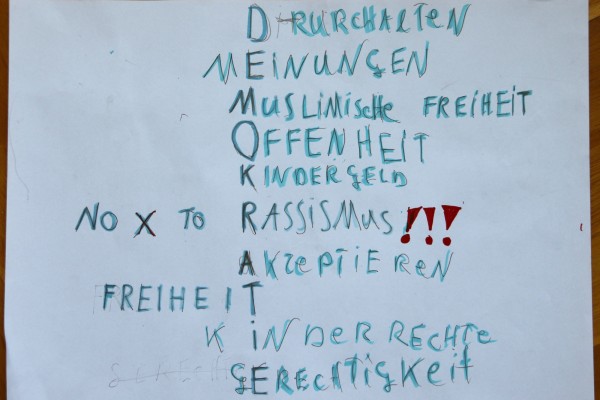 DRURCHALTEN
MEINUNGEN
MUSLiMiSCHE FREIHEIT
OFFENHEIT
KINDERGELD
NO X TO RASSISMUS!!!
AKZEPTIEREN
FREIHEIT
KiNDERRECHTE
GERECHTiGKeiT